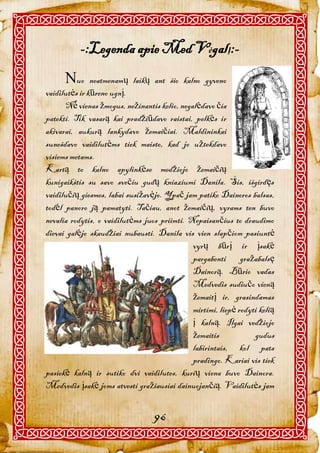 -:Legenda apie Med Vigalį:-
Nuo neatmenamų laikų ant šio kalno gyveno
vaidilutės ir kūreno ugnį.
Nė vienas žmogus, nežinantis kelio, negalėdavo čia
patekti. Tik vasarą kai pradžiūdavo raistai, pelkės ir
akivarai, aukurą lankydavo žemaičiai. Maldininkai
sunešdavo vaidilutėms tiek maisto, kad jo užtekdavo
visiems metams.
Kartą to kalno apylinkėse medžiojo žemaičių
kunigaikštis su savo svečiu gudų kniaziumi Danila. Šis, išgirdęs
vaidilučių giesmes, labai susižavėjo. Ypač jam patiko Dainoros balsas,
todėl panoro ją pamatyti. Tačiau, anot žemaičių, vyrams ten buvo
nevalia rodytis, o vaidilutėms juos priimti. Nepaisančius to draudimo
dievai galėjo skaudžiai nubausti. Danila vis vien slapčiom pasiuntė
vyrų būrį ir įsakė
pargabenti gražiabalsę
Dainorą. Būrio vadas
Medvedis sudiučo vieną
žemaitį ir, grasindamas
mirtimi, liepė rodyti kelią
į kalną. Ilgai vedžiojo
žemaitis gudus
labirintais, kol pats
pradingo. Kariai vis tiek
pasiekė kalną ir sutiko dvi vaidilutes, kurių viena buvo Dainora.
Medvedis įsakė joms atvesti gražiausiai dainuojančią. Vaidilutės jam
96